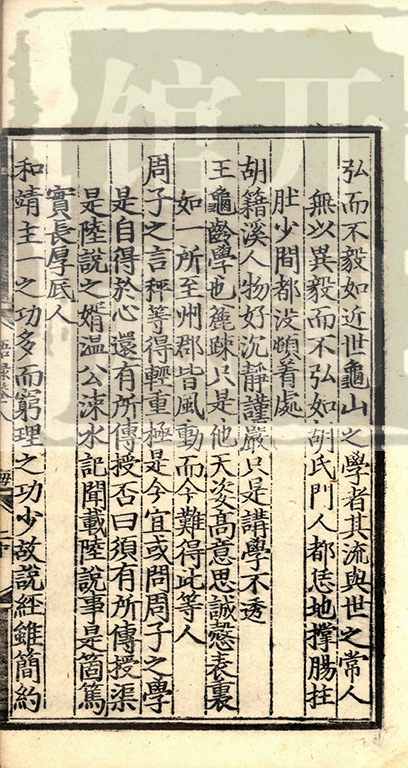 弘而不毅如近世龜山之學者其流與世之常人
無以異毅而不弘如胡氏門人都恁地撑腸拄
肚少間都没頓着處
胡籍溪人物好沉靜謹嚴只是講學不透
王龜齡學也麄踈只是他天姿髙意思誠慤表裏
如一所至州郡皆風動而今難得此等人
周子之言秤等得輕重極是今宜或問周子之學
是自得於心還有所傳授否曰須有所傳授渠
是陸説之婿温公涑水記聞載陸説事是箇篤
實長厚底人
和靖主一之功多而窮理之功少故説經雖簡約